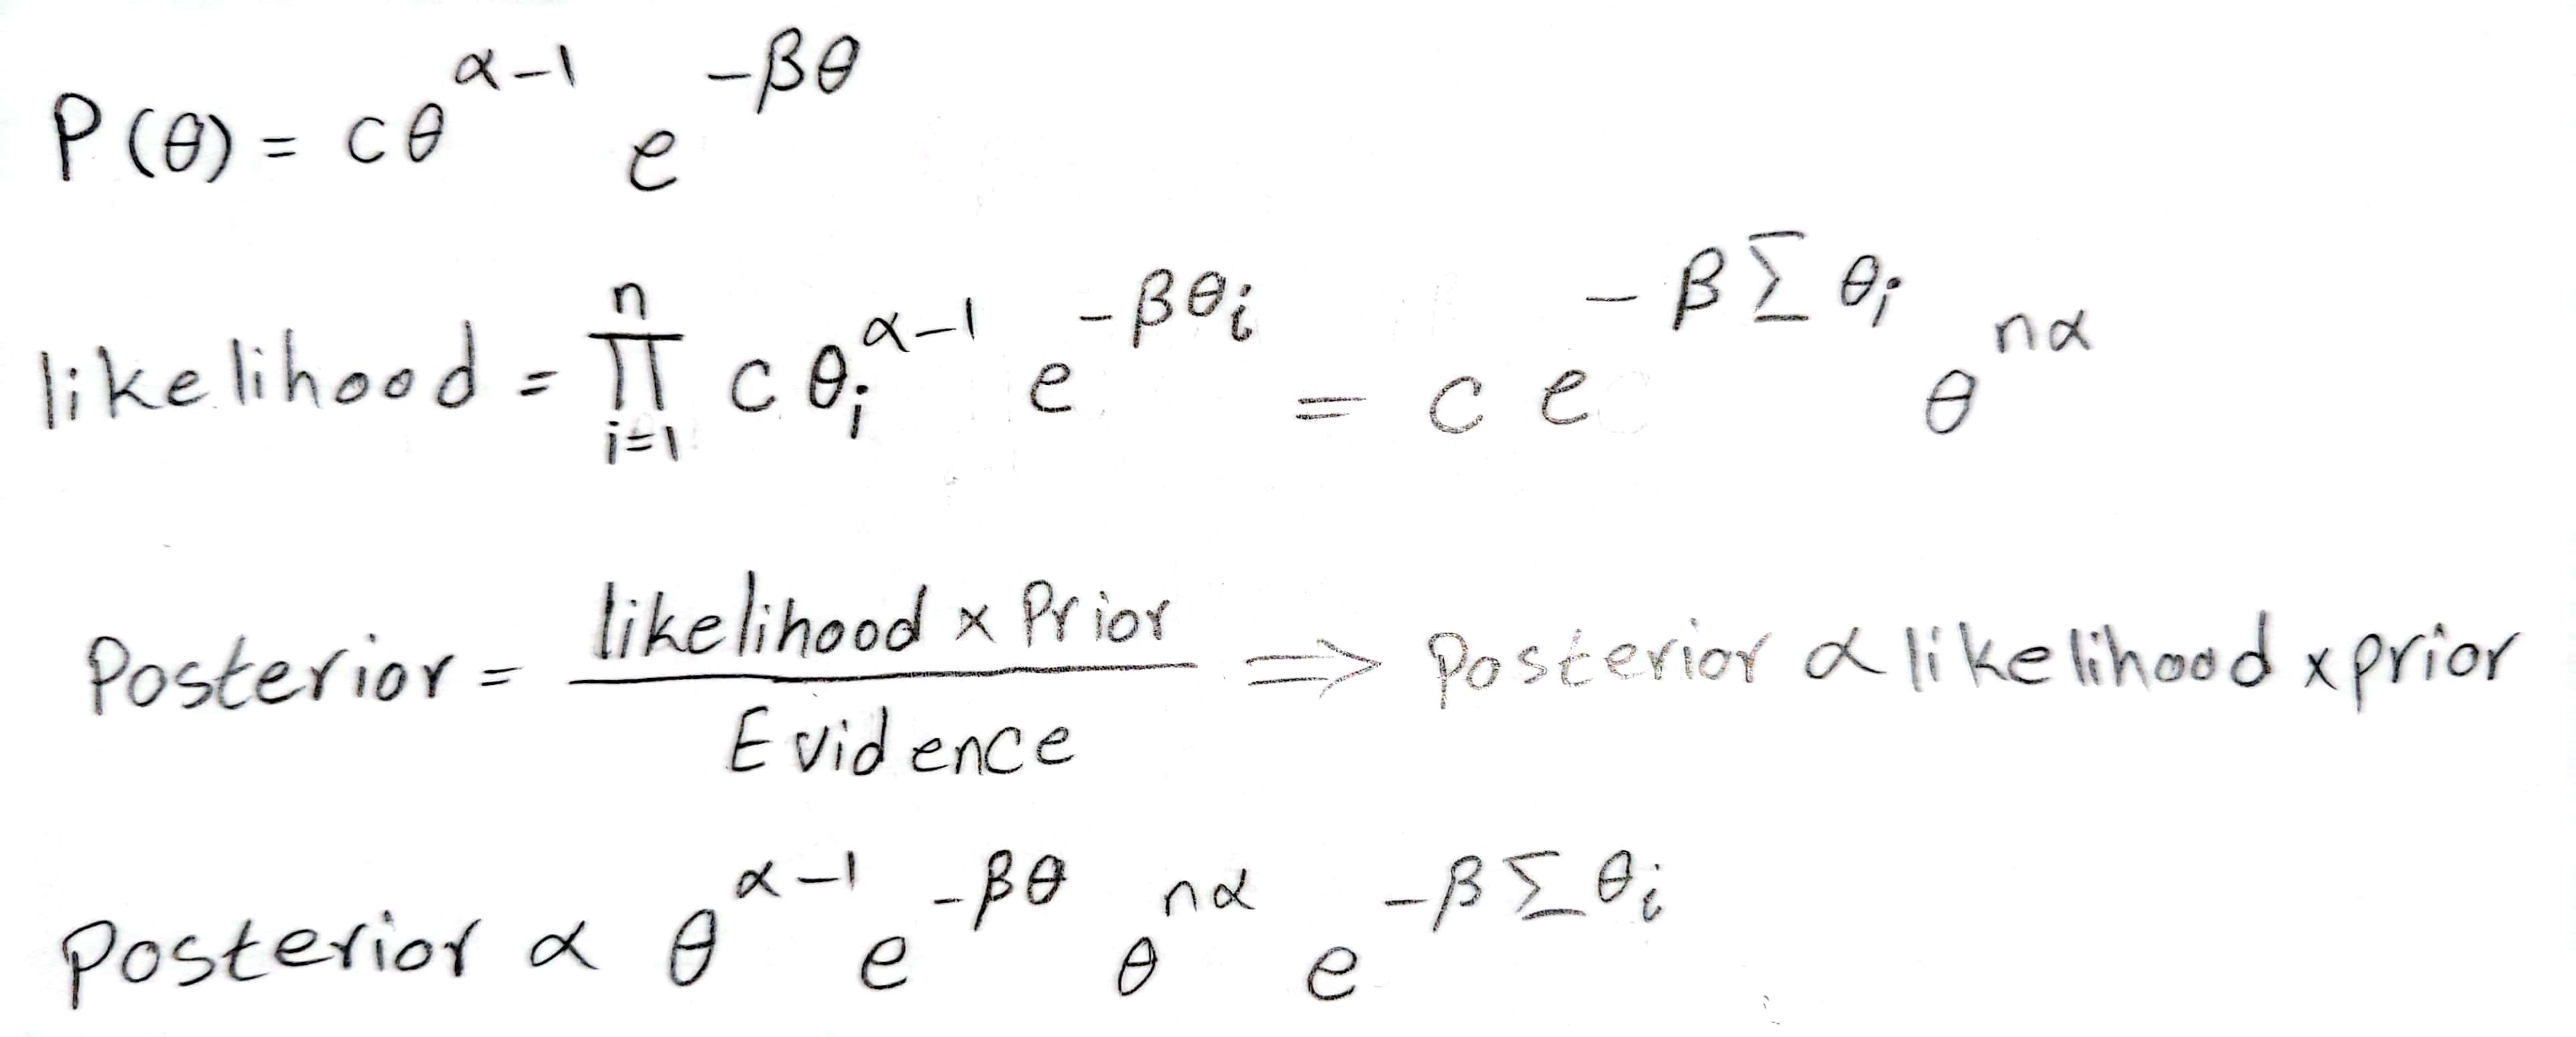 P(θ) = cθ^{α-1} e^{-βθ}
likelihood = ∏_{i=1}^{n} c θ_i^{α-1} e^{-βθ_i} = c e^{-β∑θ_i} θ^{nα}
Posterior = \frac{likelihood × Prior}{Evidence} ⟹ Posterior α likelihood × prior
Posterior α θ^{α-1} e^{-βθ} θ^{nα} e^{-β∑θ_i}